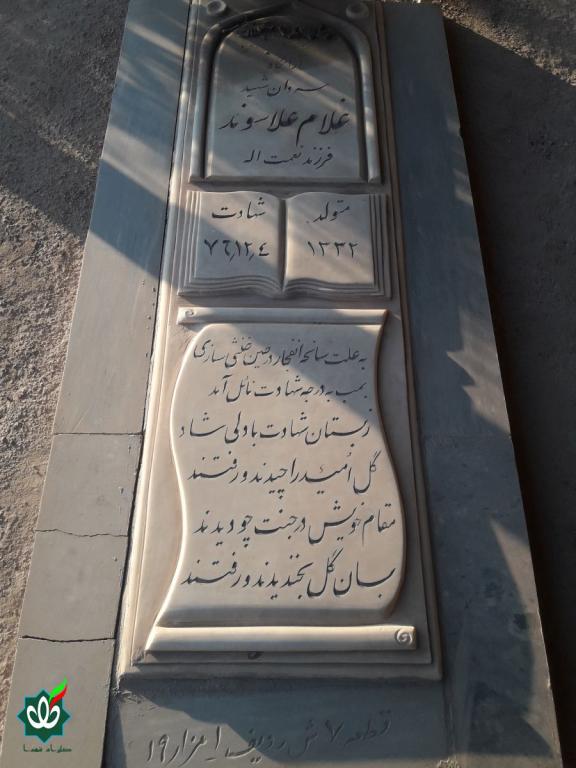 سروان شهید
غلام علاسوند
فرزند نعمت اله
متولد
۱۳۳۲
شهادت
۷۶,۱۲,۴
به علت سانحه انفجار در حین خنثی سازی
بمب به درجه شهادت نائل آمد
زبستان شهادت با دلی شاد
گل امید را چیدند و رفتند
مقام خویش در جنت چو دیدند
بسان گل بخندیدند و رفتند
قطعه ۷ ش ردیف ۱ مزار ۱۹